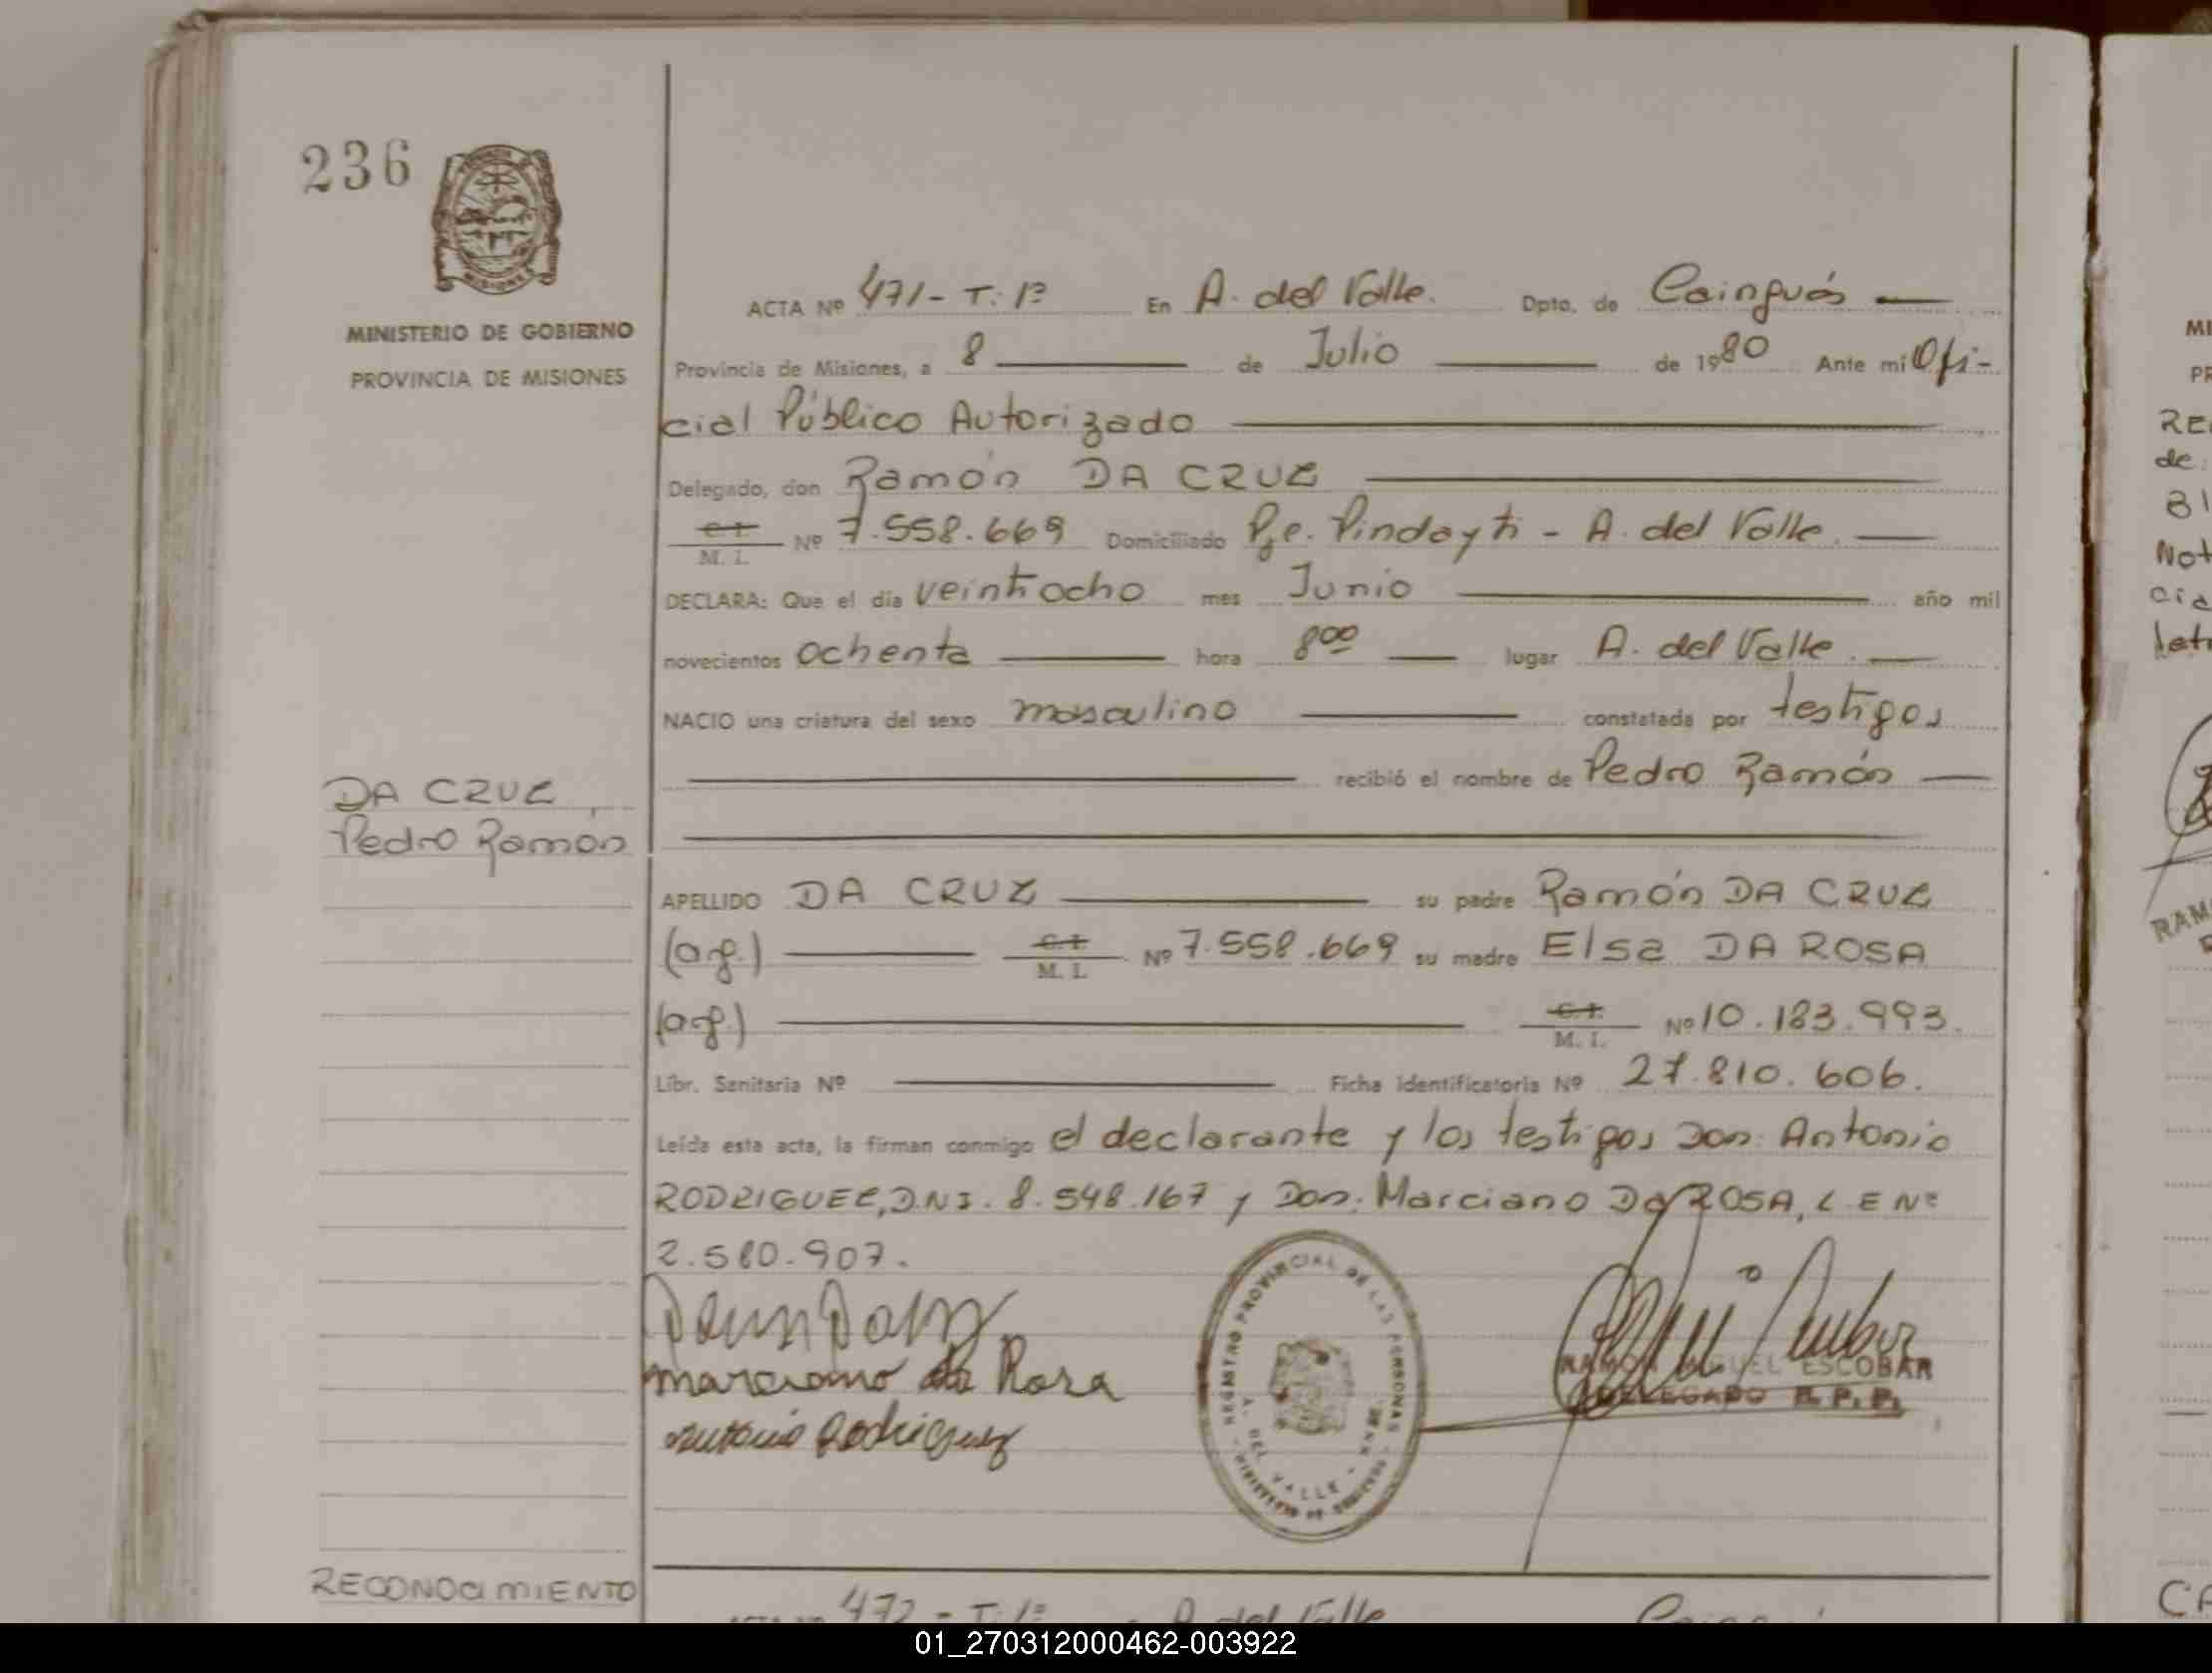 236
PROVINCIA
MISIONES
MINISTERIO DE GOBIERNO
PROVINCIA DE MISIONES
ACTA Nº 471 - T. 1º En A. del Valle. Dpto. de Cainguás
Provincia de Misiones, a 8 de Julio de 1980 Ante mi Ofi-
cial Público Autorizado
Delegado, don Ramón DA CRUZ
C. I.
M. I. Nº 7.558.669 Domiciliado Pje. Pindayti - A. del Valle.
DECLARA: Que el día veintiocho mes Junio año mil
novecientos ochenta hora 8ºº lugar A. del Valle.
NACIO una criatura del sexo masculino constatada por testigos
recibió el nombre de Pedro Ramón
DA CRUZ,
Pedro Ramón
APELLIDO DA CRUZ su padre Ramón DA CRUZ
(arg.) C. I.
M. I. Nº 7.558.669 su madre Elsa DA ROSA
(arg.) C. I.
M. I. Nº 10.183.993.
Libr. Sanitaria Nº Ficha Identificatoria Nº 27.810.606.
Leída esta acta, la firman conmigo el declarante y los testigos Don: Antonio
RODRIGUEZ, D.N.I. 8.548.167 y Don: Marciano DA ROSA, L.E Nº
2.580.907.
marciano da Rosa
Antonio Rodriguez
REGISTRO PROVINCIAL DE LAS PERSONAS
MINISTERIO DE GOBIERNO
A. DEL VALLE - MNES.
RAMON MIGUEL ESCOBAR
DELEGADO R. P. P.
RECONOCIMIENTO
ACTA Nº 472 - T. 1º A. del Valle
01_270312000462-003922